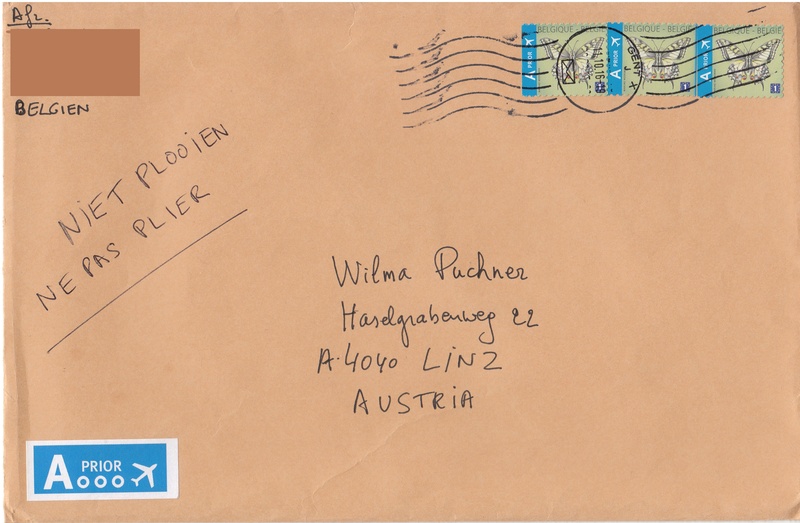 Afz.
BELGIEN
BELGIQUE - BELGIË
BELGIQUE - BELGIË
BELGIQUE - BELGIË
A PRIOR
A PRIOR
A PRIOR
1
1
GENT X
NIET PLOOIEN
NE PAS PLIER
Wilma Puchner
Haselgrabenweg 22
A-4040 LINZ
AUSTRIA
A PRIOR